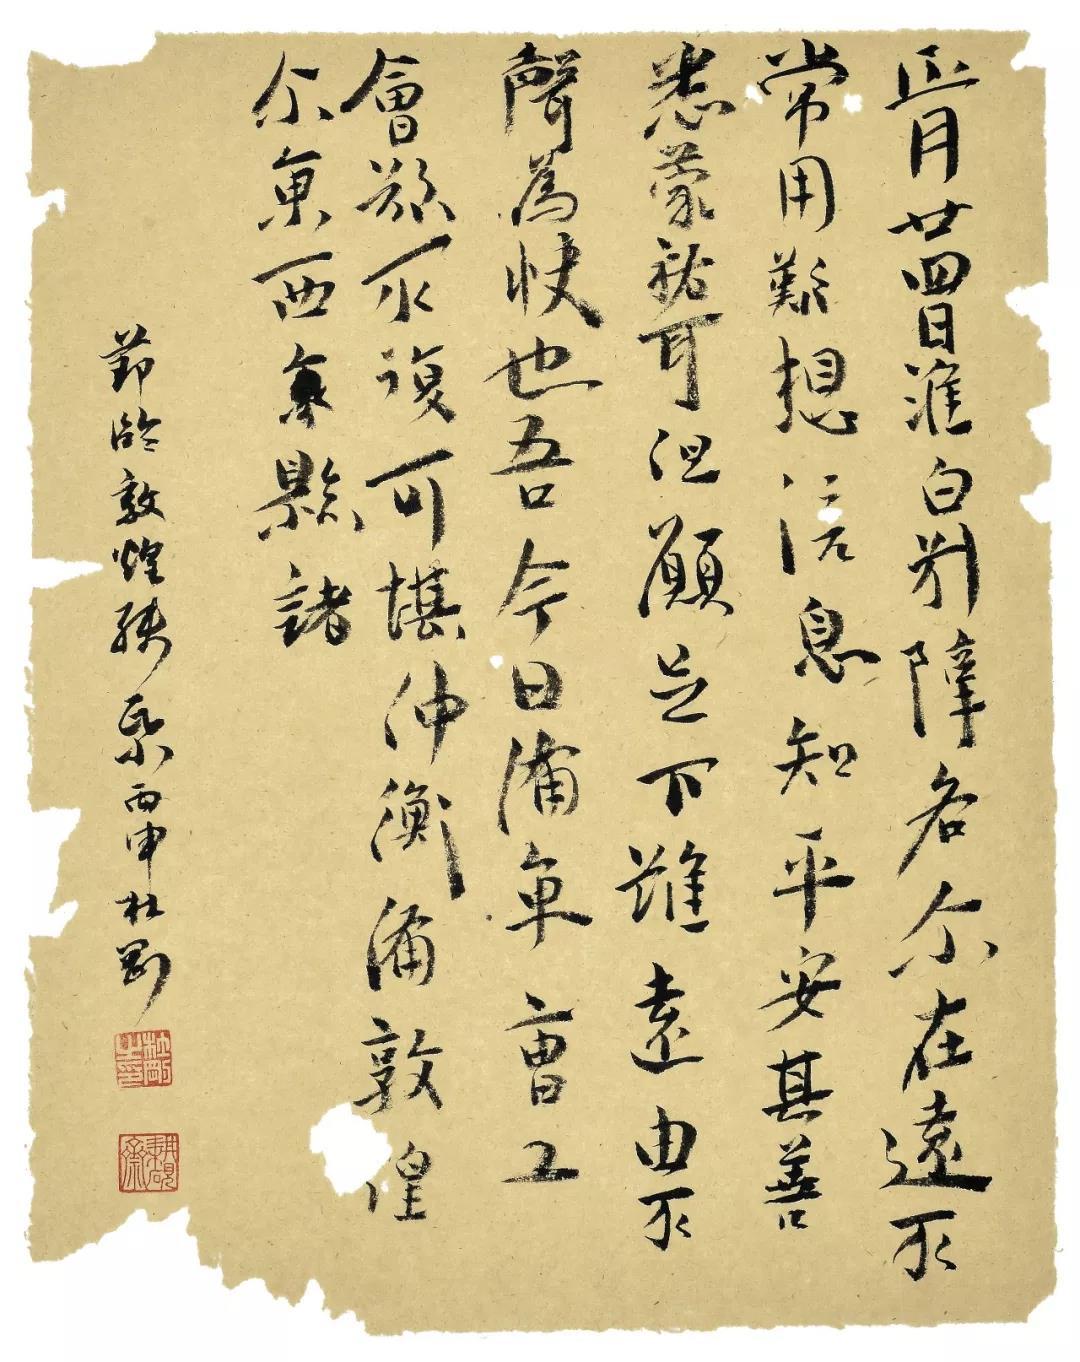 正月廿四日淮白別障各尒在遠不
常用艱想信息知平安甚善
悉蒙祐耳但願足下雖遠由不
聲為快也吾今日備車曹工
會欲不復可堪仲衡備敦煌
尒東西奈縣諸
節臨敦煌殘紙丙申杜剛